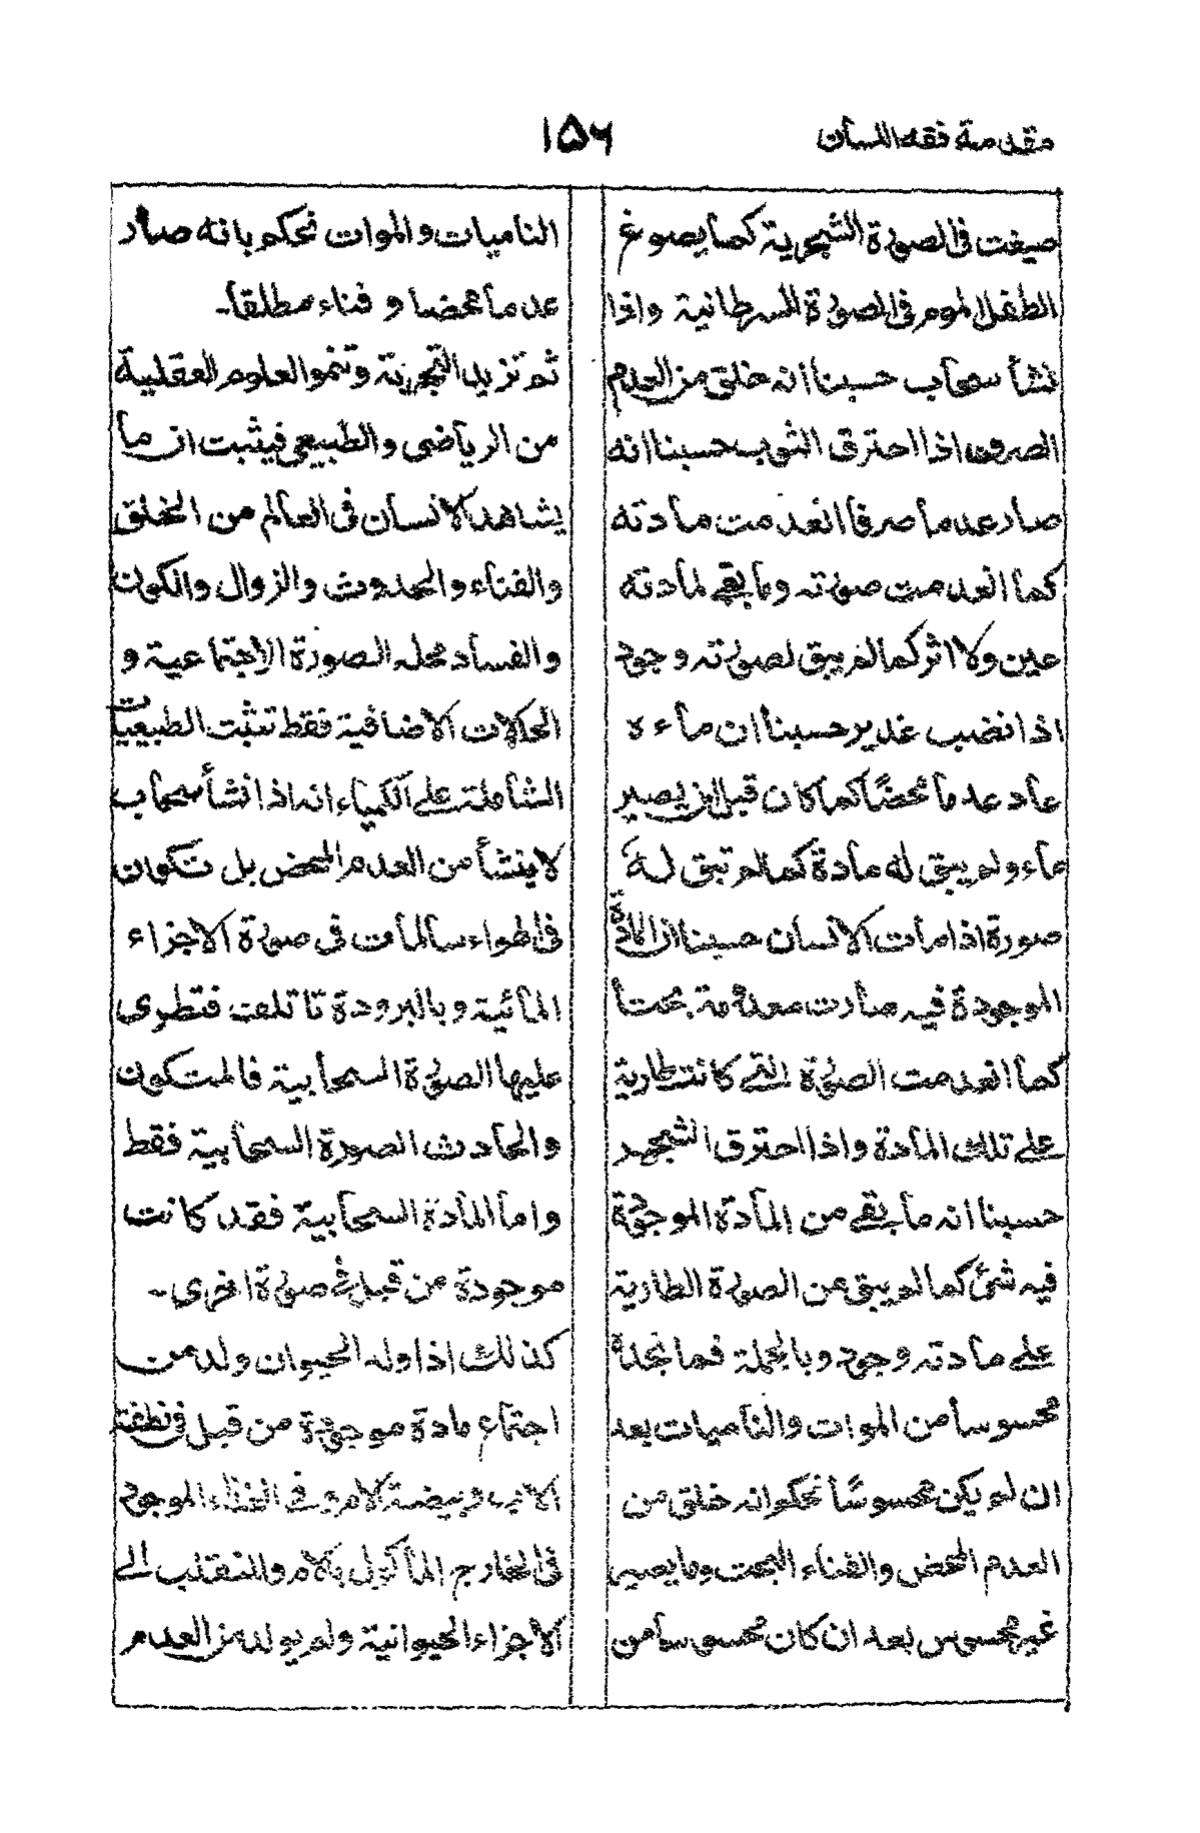 مقدمة فقه اللسان
١٥٦
صيغت فى الصورة الشجرية كما يصوغ
الطفل الموم فى الصورة السرطانية واذا
نشأ سحاب حسبنا انه خلق من العدم
الصرف اذا احترق الثوب حسبنا انه
صار عدما صرفا انعدمت مادته
كما انعدمت صورته وما بقى لمادته
عين ولا اثر كما لم يبق لصورته وجود
اذا نضب غدير حسبنا ان ماءه
عاد عدما محضًا كما كان قبل ان يصير
ماء ولم يبق له مادة كما لم تبق له
صورة اذا مات الانسان حسبنا ان المادة
الموجودة فيه صارت معدومة بحتا
كما انعدمت الصورة التى كانت طارية
على تلك المادة واذا احترق الشجر
حسبنا انه ما بقى من المادة الموجودة
فيه شئ كما لم يبق من الصورة الطارية
على مادته وجود وبالجملة فما نجده
محسوسا من الموات والناميات بعد
ان لم يكن محسوسًا نحكم انه خلق من
العدم المحض والفناء البحت وما يصير
غير محسوس بعد ان كان محسوسا من
الناميات والموات نحكم بانه صار
عدما محضا و فناء مطلقا۔
ثم تزيد التجربة وتنمو العلوم العقلية
من الرياضى والطبيعى فيثبت ان ما
يشاهد الانسان فى العالم من الخلق
والفناء والحدوث والزوال والكون
والفساد محله الصورة الاجتماعية و
الحالات الاضافية فقط تثبت الطبيعيات
الشاملة على الكمياء انه اذا نشأ سحاب
لا ينشأ من العدم المحض بل تكون ان
فى الهواء سالمات فى صورة الاجزاء
المائية وبالبرودة تا تلف فتطرى
عليها الصورة السحابية فالمتكون
والحادث الصورة السحابية فقط
واما المادة السحابية فقد كانت
موجودة من قبل فى صورة اخرى۔
كذلك اذا ولد الحيوان ولد من
اجتماع مادة موجودة من قبل فى نطفة
الاب وبيضة الام وفى الغذاء الموجود
فى الخارج الماكول بالام والمنقلب الى
الاجزاء الحيوانية ولم يولد من العدم